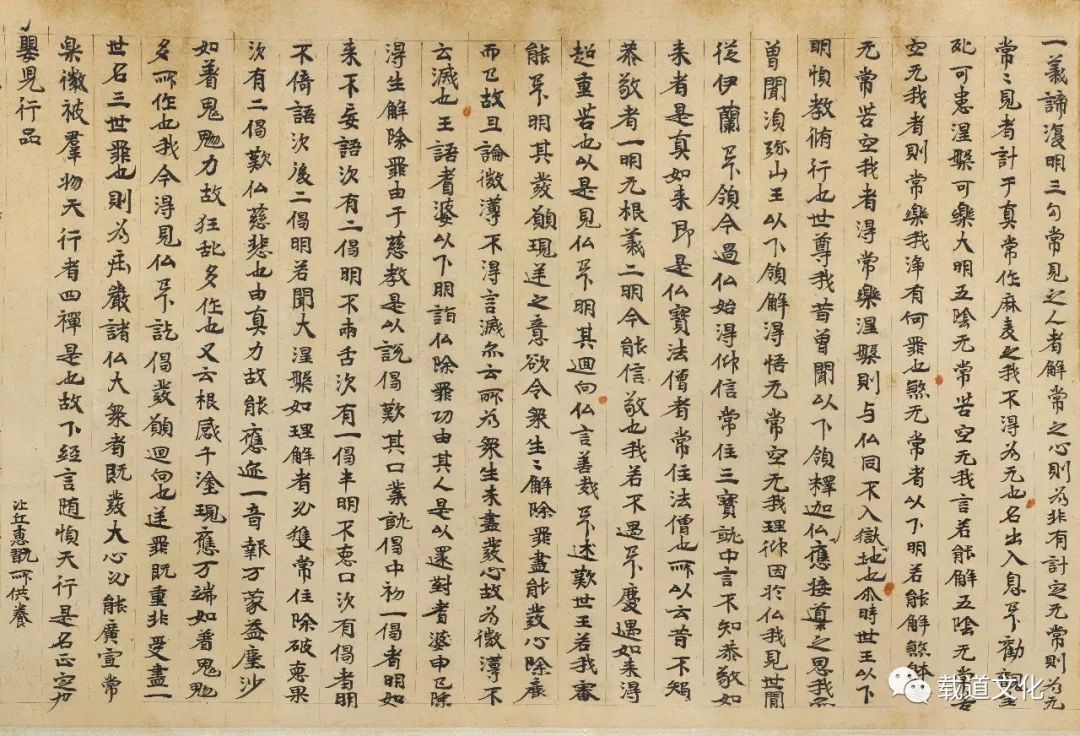 一義諦復明三句常見之人者解常之心則為非有計之无常則為无
常〻見者計于真常作麻麦之我不得為无也名出入息下勸觀生
死可患涅槃可樂大明五陰无常苦空无我言若能解五陰无常苦
空无我者則常樂我淨有何罪也煞无常者以下明若能解煞
无常苦空我者得常樂涅槃則与仏同不入獄地也尒時世王以下
明慎教脩行也世尊我昔曾聞以下領釋迦仏應接導之恩我
曾聞湏弥山王以下領解得悟无常空无我理仰因於仏我見世間
従伊蘭下領今過仏始得仰信常住三寶就中言不知恭敬如
来者是真如来即是仏寶法僧者常住法僧也所以云昔不知
恭敬者一明无根義二明今能信敬也我若不遇下慶遇如来得
超重苦也以是見仏下明其迴向仏言善哉下述歎世王若我審
能下明其發願現逆之意欲令衆生〻解除罪盡能發心除
而已故且論微薄不得言滅尒云所為衆生未盡發心故為微薄不
云滅也王語耆婆以下明詣仏除罪功由其人是以還對耆婆申已除
得生解除罪由于慈教是以說偈歎其口業就偈中初一偈者明如
来不妄語次有二偈明不兩舌次有一偈半明不悪口次有偈者明
不倚語次後二偈明若聞大涅槃如理解者必獲常住除破悪果
次有二偈歎仏慈悲也由真力故能應迹一音報万蒙益塵沙
如着鬼魅力故狂乱多作也又云根感千塗現應万端如着鬼魅
多所作也我今得見仏下訖偈發願迴向也逆罪既重非受盡一
世名三世罪也則為庄嚴諸仏大衆者既發大心必能廣宣常
樂徽被羣物天行者四禪是也故下經言随慎天行是名正
嬰兒行品
比丘惠所供養
载道文化